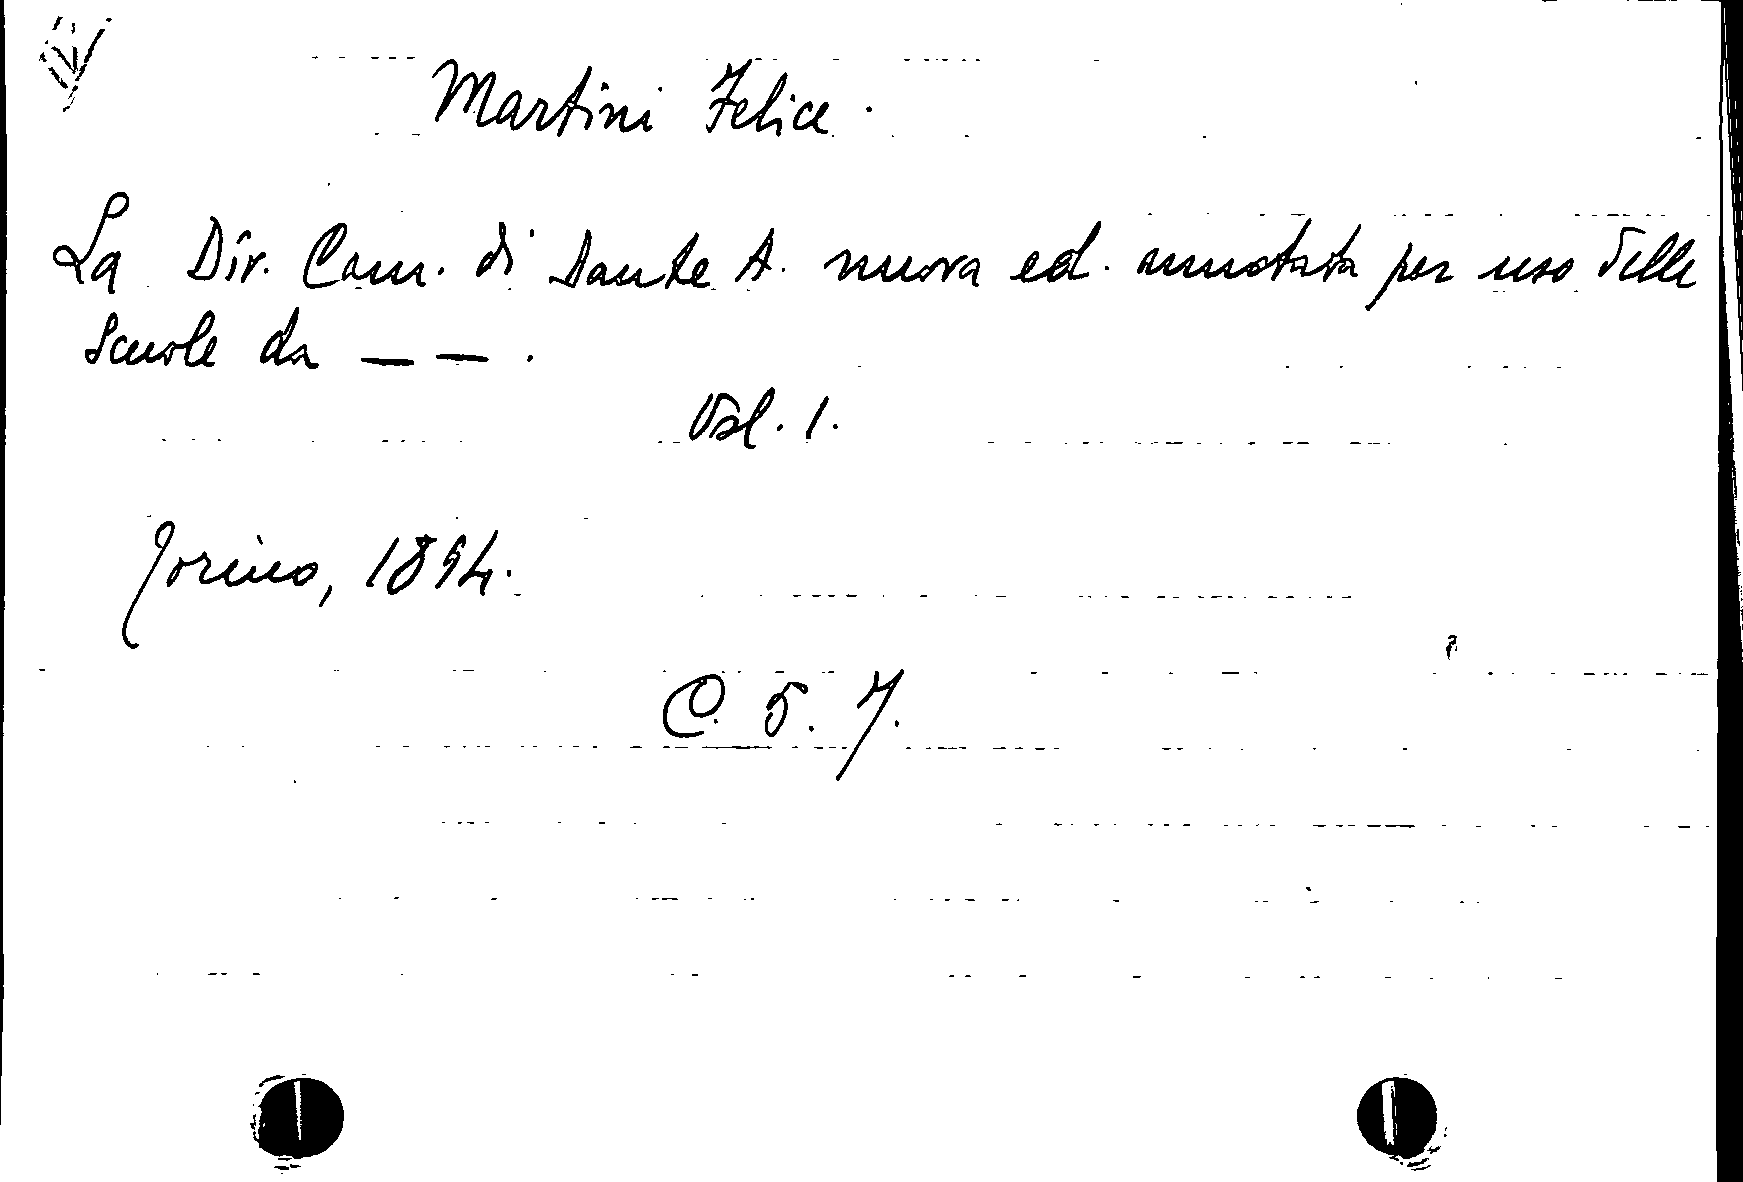 Martini Felice.
La Div. Com. di Dante A. nuova ed. annotata per uso delle
scuole da — — .
Vol. 1.
Torino, 1894.
C. 5. 7.